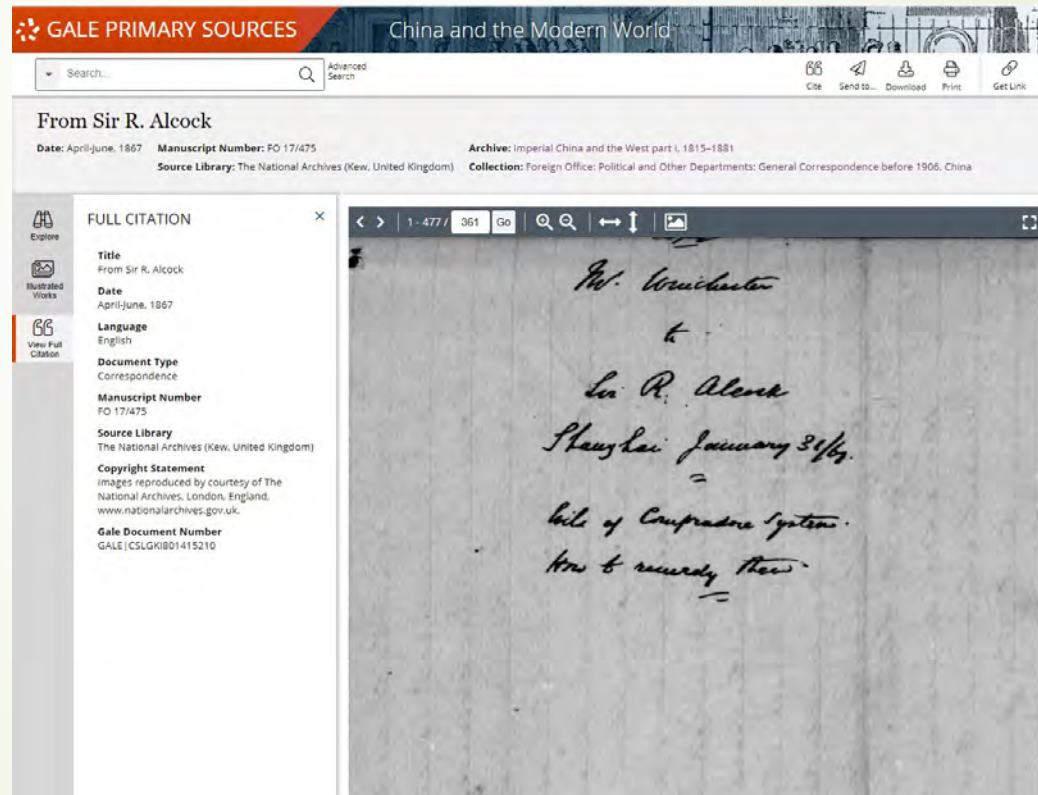 GALE PRIMARY SOURCES
China and the Modern World
Search...
Advanced
Search
Cite
Send to...
Download
Print
Get Link
From Sir R. Alcock
Date: April-June, 1867
Manuscript Number: FO 17/475
Archive: Imperial China and the West part I, 1815–1881
Source Library: The National Archives (Kew, United Kingdom)
Collection: Foreign Office: Political and Other Departments: General Correspondence before 1906, China
Explore
Illustrated
Works
View Full
Citation
FULL CITATION
Title
From Sir R. Alcock
Date
April-June, 1867
Language
English
Document Type
Correspondence
Manuscript Number
FO 17/475
Source Library
The National Archives (Kew, United Kingdom)
Copyright Statement
Images reproduced by courtesy of The
National Archives, London, England.
www.nationalarchives.gov.uk.
Gale Document Number
GALE|CSLGKI801415210
1 - 477 / 361 Go
Mr. Winchester
to
Sir R. Alcock
Shanghai January 31/67.
Evils of Compradore System.
How to remedy them.